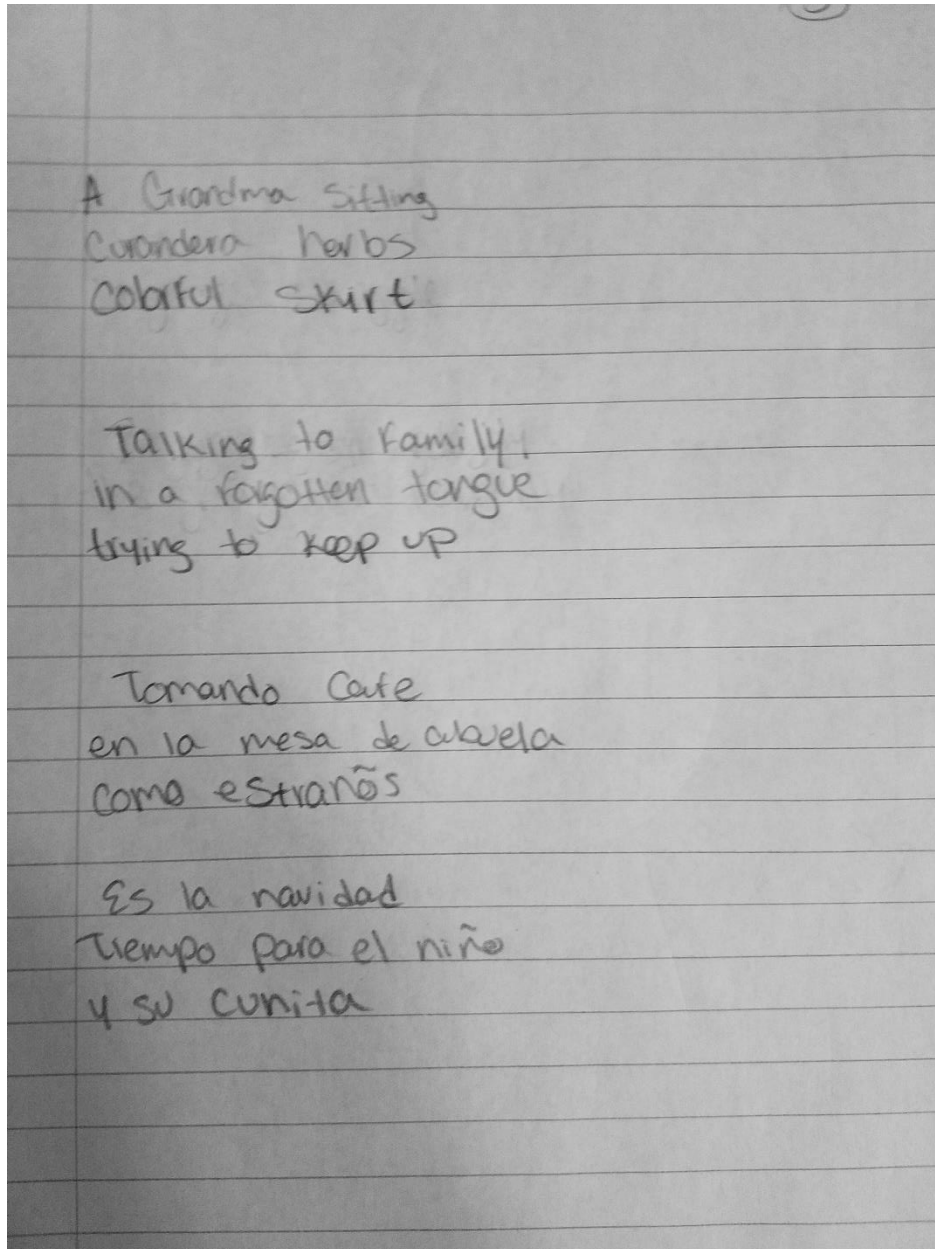 A Grandma Sitting
Curandera herbs
Colorful Skirt
Talking to Family,
in a forgotten tongue
trying to keep up
Tomando Cafe
en la mesa de abuela
como estranõs
Es la navidad
Tiempo para el niño
y su cunita